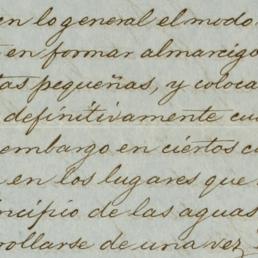 en lo general el modo
en formar almacigo
tas pequeñas, y coloca
definitivamente cu
embargo en ciertos c
en los lugares que
ncipio de las aguas
rollarse de una vez